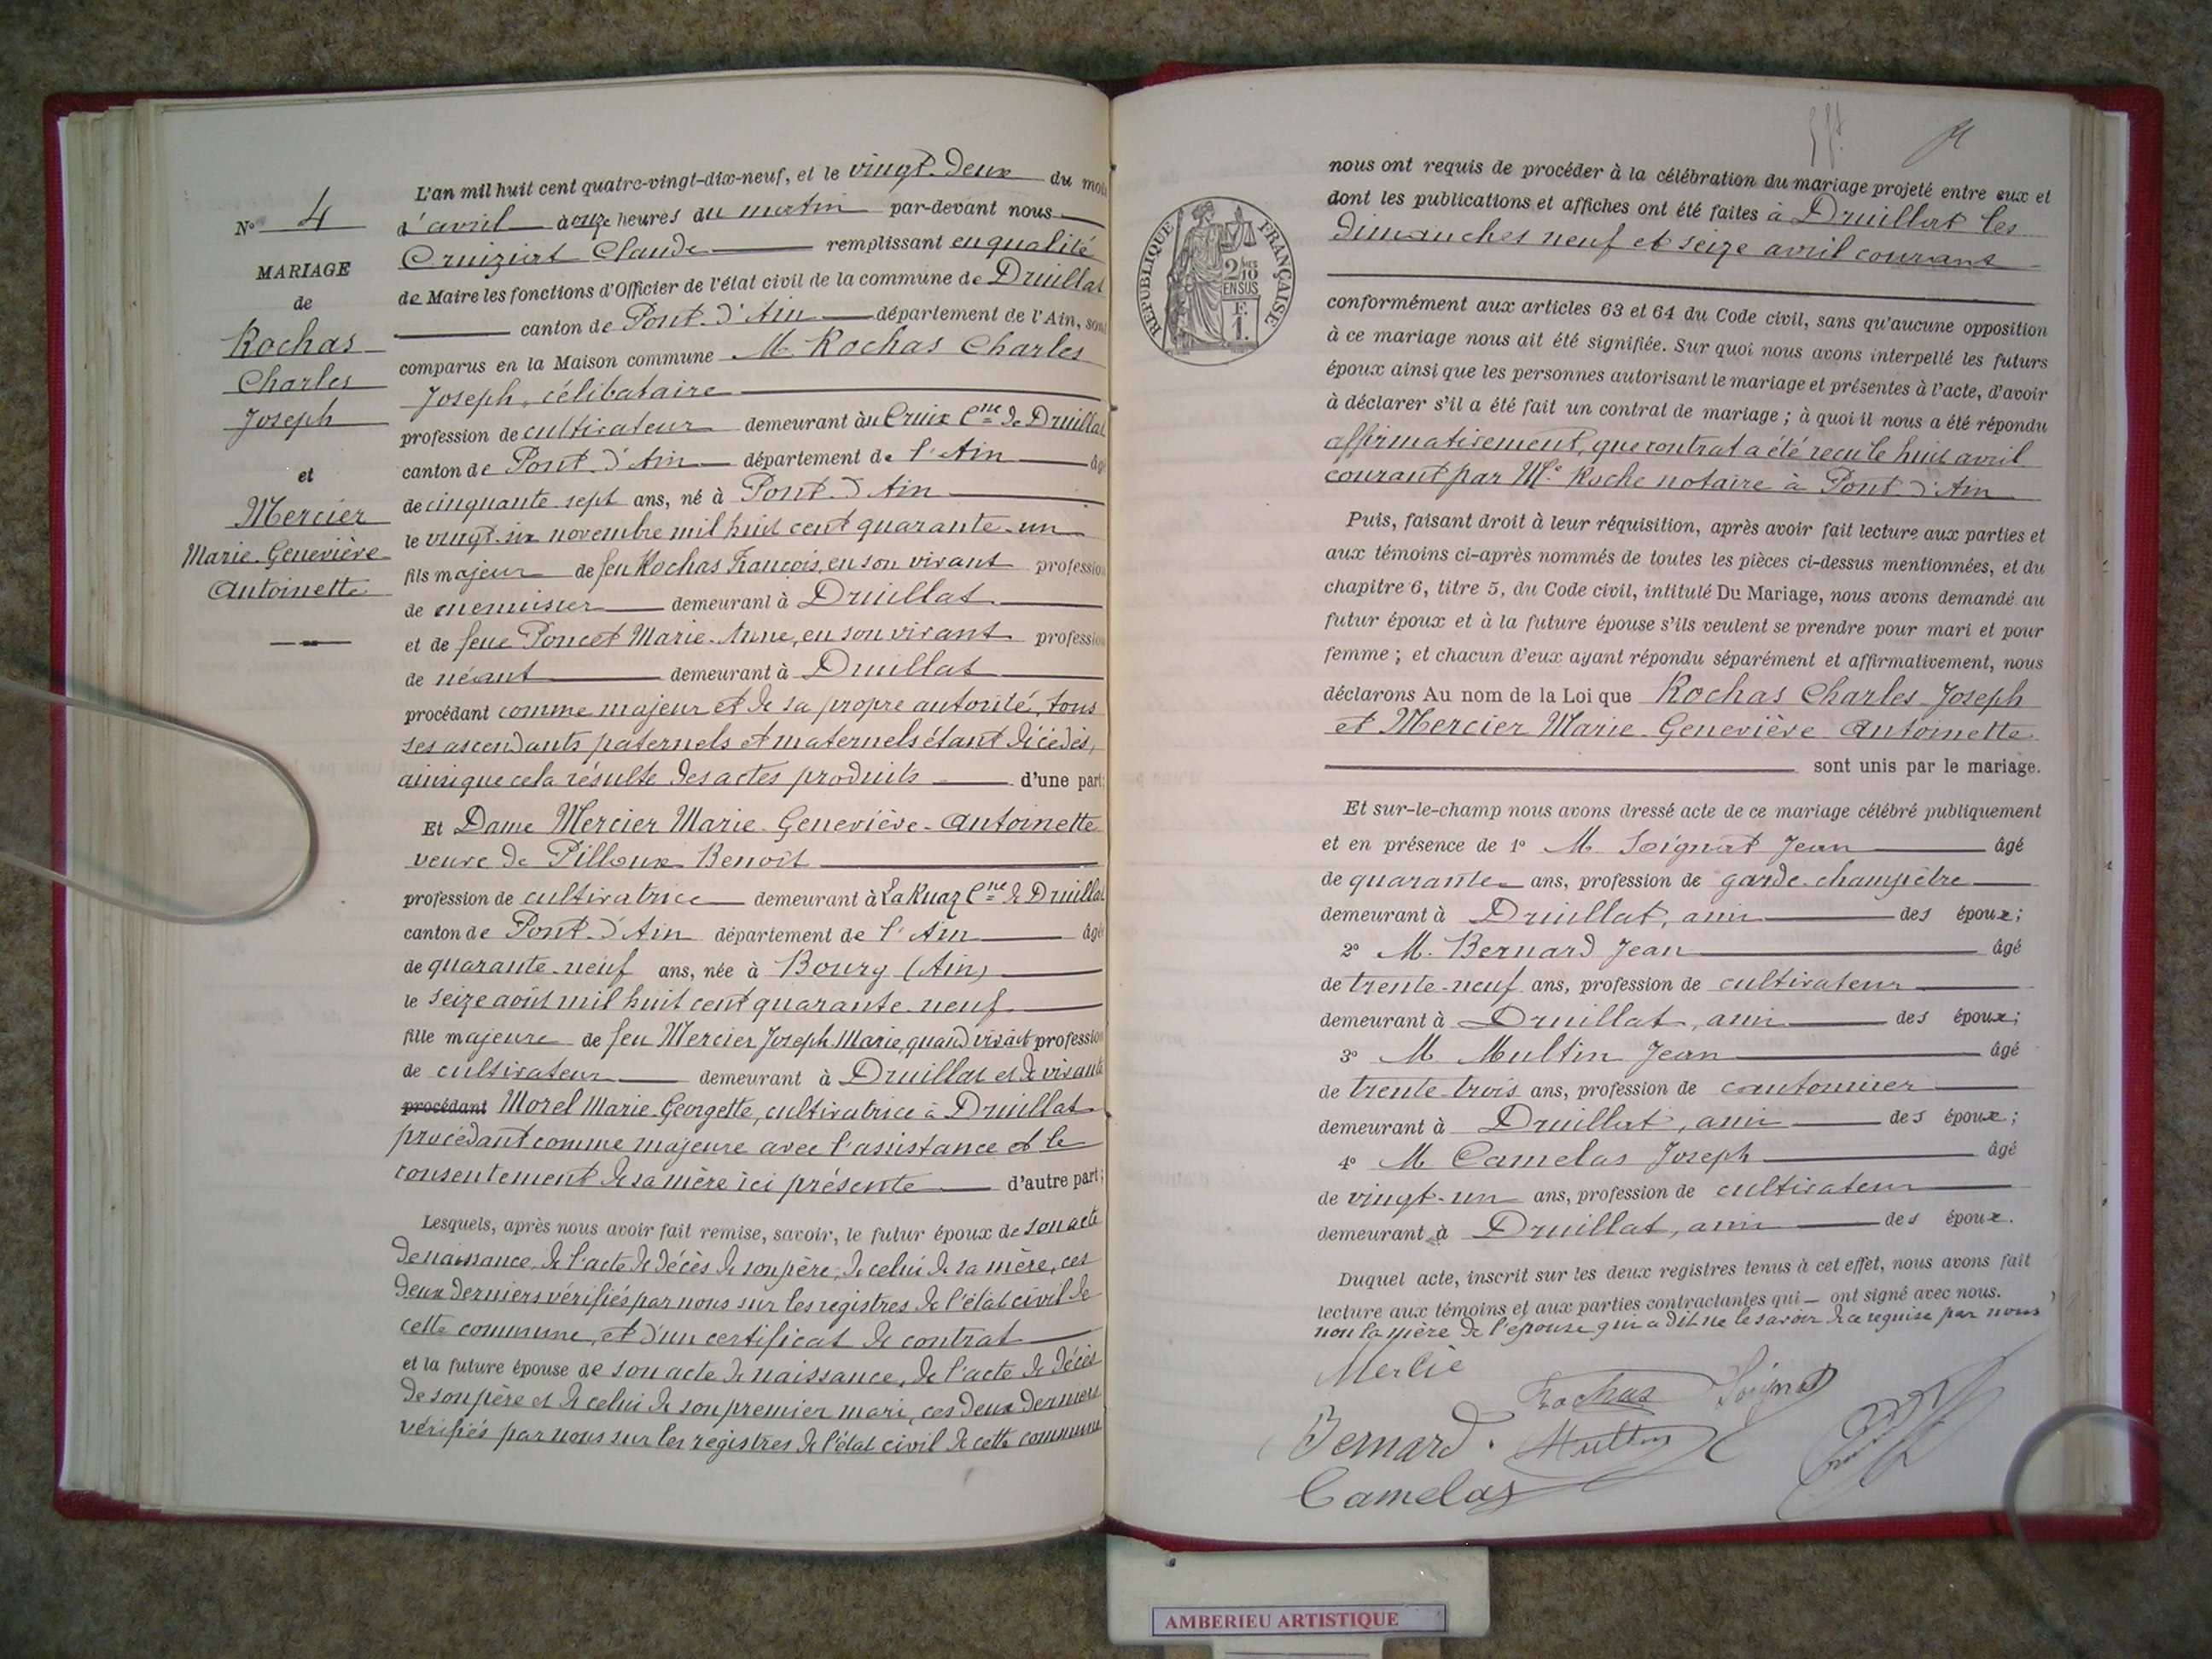 L'an mil huit cent quatre-vingt-dix-neuf, et le vingt-deux du mois
d'avril à onze heures du matin par-devant nous
Cruiziat Claude remplissant en qualité
de Maire les fonctions d'Officier de l'état civil de la commune de Druillat
canton de Pont-d'Ain département de l'Ain, sont
comparus en la Maison commune M. Rochas Charles
Joseph, célibataire
profession de cultivateur demeurant au Cruix Cne de Druillat
canton de Pont-d'Ain département de l'Ain âgé
de cinquante-sept ans, né à Pont-d'Ain
le vingt-six novembre mil huit cent quarante-un
fils majeur de feu Rochas François, en son vivant profession
de menuisier demeurant à Druillat
et de feue Poncet Marie-Anne, en son vivant profession
de néant demeurant à Druillat
procédant comme majeur et de sa propre autorité, tous
ses ascendants paternels et maternels étant décédés,
ainsi que cela résulte des actes produits d'une part;
Et Dame Mercier Marie-Geneviève-Antoinette
veuve de Pilloux Benoît
profession de cultivatrice demeurant à La Ruaz Cne de Druillat
canton de Pont-d'Ain département de l'Ain âgée
de quarante-neuf ans, née à Bourg (Ain)
le seize août mil huit cent quarante-neuf
fille majeure de feu Mercier Joseph-Marie, quand vivait profession
de cultivateur demeurant à Druillat et de vivante
procédant Morel Marie-Georgette, cultivatrice à Druillat
procédant comme majeure avec l'assistance et le
consentement de sa mère ici présente d'autre part;
Lesquels, après nous avoir fait remise, savoir, le futur époux de son acte
de naissance, de l'acte de décès de son père, de celui de sa mère, ces
deux derniers vérifiés par nous sur les registres de l'état civil de
cette commune, et d'un certificat de contrat
et la future épouse de son acte de naissance, de l'acte de décès
de son père et de celui de son premier mari, ces deux derniers
vérifiés par nous sur les registres de l'état civil de cette commune
No 4
MARIAGE
de
Rochas
Charles
Joseph
et
Mercier
Marie-Geneviève
Antoinette
nous ont requis de procéder à la célébration du mariage projeté entre eux et
dont les publications et affiches ont été faites à Druillat les
dimanches neuf et seize avril courant
RÉPUBLIQUE FRANÇAISE
2/10
EN SUS
F.
1.
conformément aux articles 63 et 64 du Code civil, sans qu'aucune opposition
à ce mariage nous ait été signifiée. Sur quoi nous avons interpellé les futurs
époux ainsi que les personnes autorisant le mariage et présentes à l'acte, d'avoir
à déclarer s'il a été fait un contrat de mariage; à quoi il nous a été répondu
affirmativement, que contrat a été reçu le huit avril
courant par Me Roche notaire à Pont-d'Ain
Puis, faisant droit à leur réquisition, après avoir fait lecture aux parties et
aux témoins ci-après nommés de toutes les pièces ci-dessus mentionnées, et du
chapitre 6, titre 5, du Code civil, intitulé Du Mariage, nous avons demandé au
futur époux et à la future épouse s'ils veulent se prendre pour mari et pour
femme; et chacun d'eux ayant répondu séparément et affirmativement, nous
déclarons Au nom de la Loi que Rochas Charles-Joseph
et Mercier Marie-Geneviève-Antoinette
sont unis par le mariage.
Et sur-le-champ nous avons dressé acte de ce mariage célébré publiquement
et en présence de 1o M. Soignat Jean âgé
de quarante ans, profession de garde-champêtre
demeurant à Druillat, ami des époux;
2o M. Bernard Jean âgé
de trente-neuf ans, profession de cultivateur
demeurant à Druillat, ami des époux;
3o M Multin Jean âgé
de trente-trois ans, profession de cantonnier
demeurant à Druillat, ami des époux;
4o M Camelas Joseph âgé
de vingt-un ans, profession de cultivateur
demeurant à Druillat, ami des époux.
Duquel acte, inscrit sur les deux registres tenus à cet effet, nous avons fait
lecture aux témoins et aux parties contractantes qui ont signé avec nous.
non la mère de l'épouse qui a dit ne le savoir de ce requise par nous
Rochas
Bernard
Multin
Camelas
AMBERIEU ARTISTIQUE